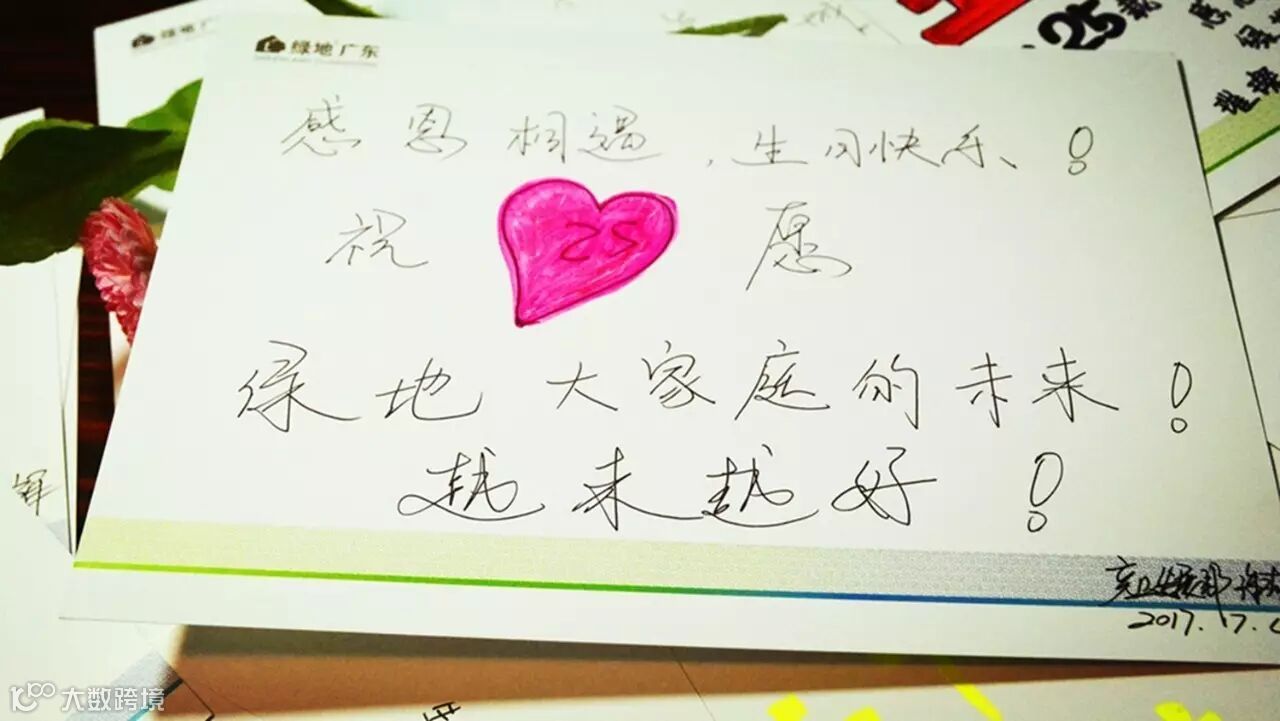 绿地广东
绿地广东
感恩相遇,生日快乐!
祝 25 愿
绿地大家庭的未来!
越来越好!
2017.17.
25
大数跨境